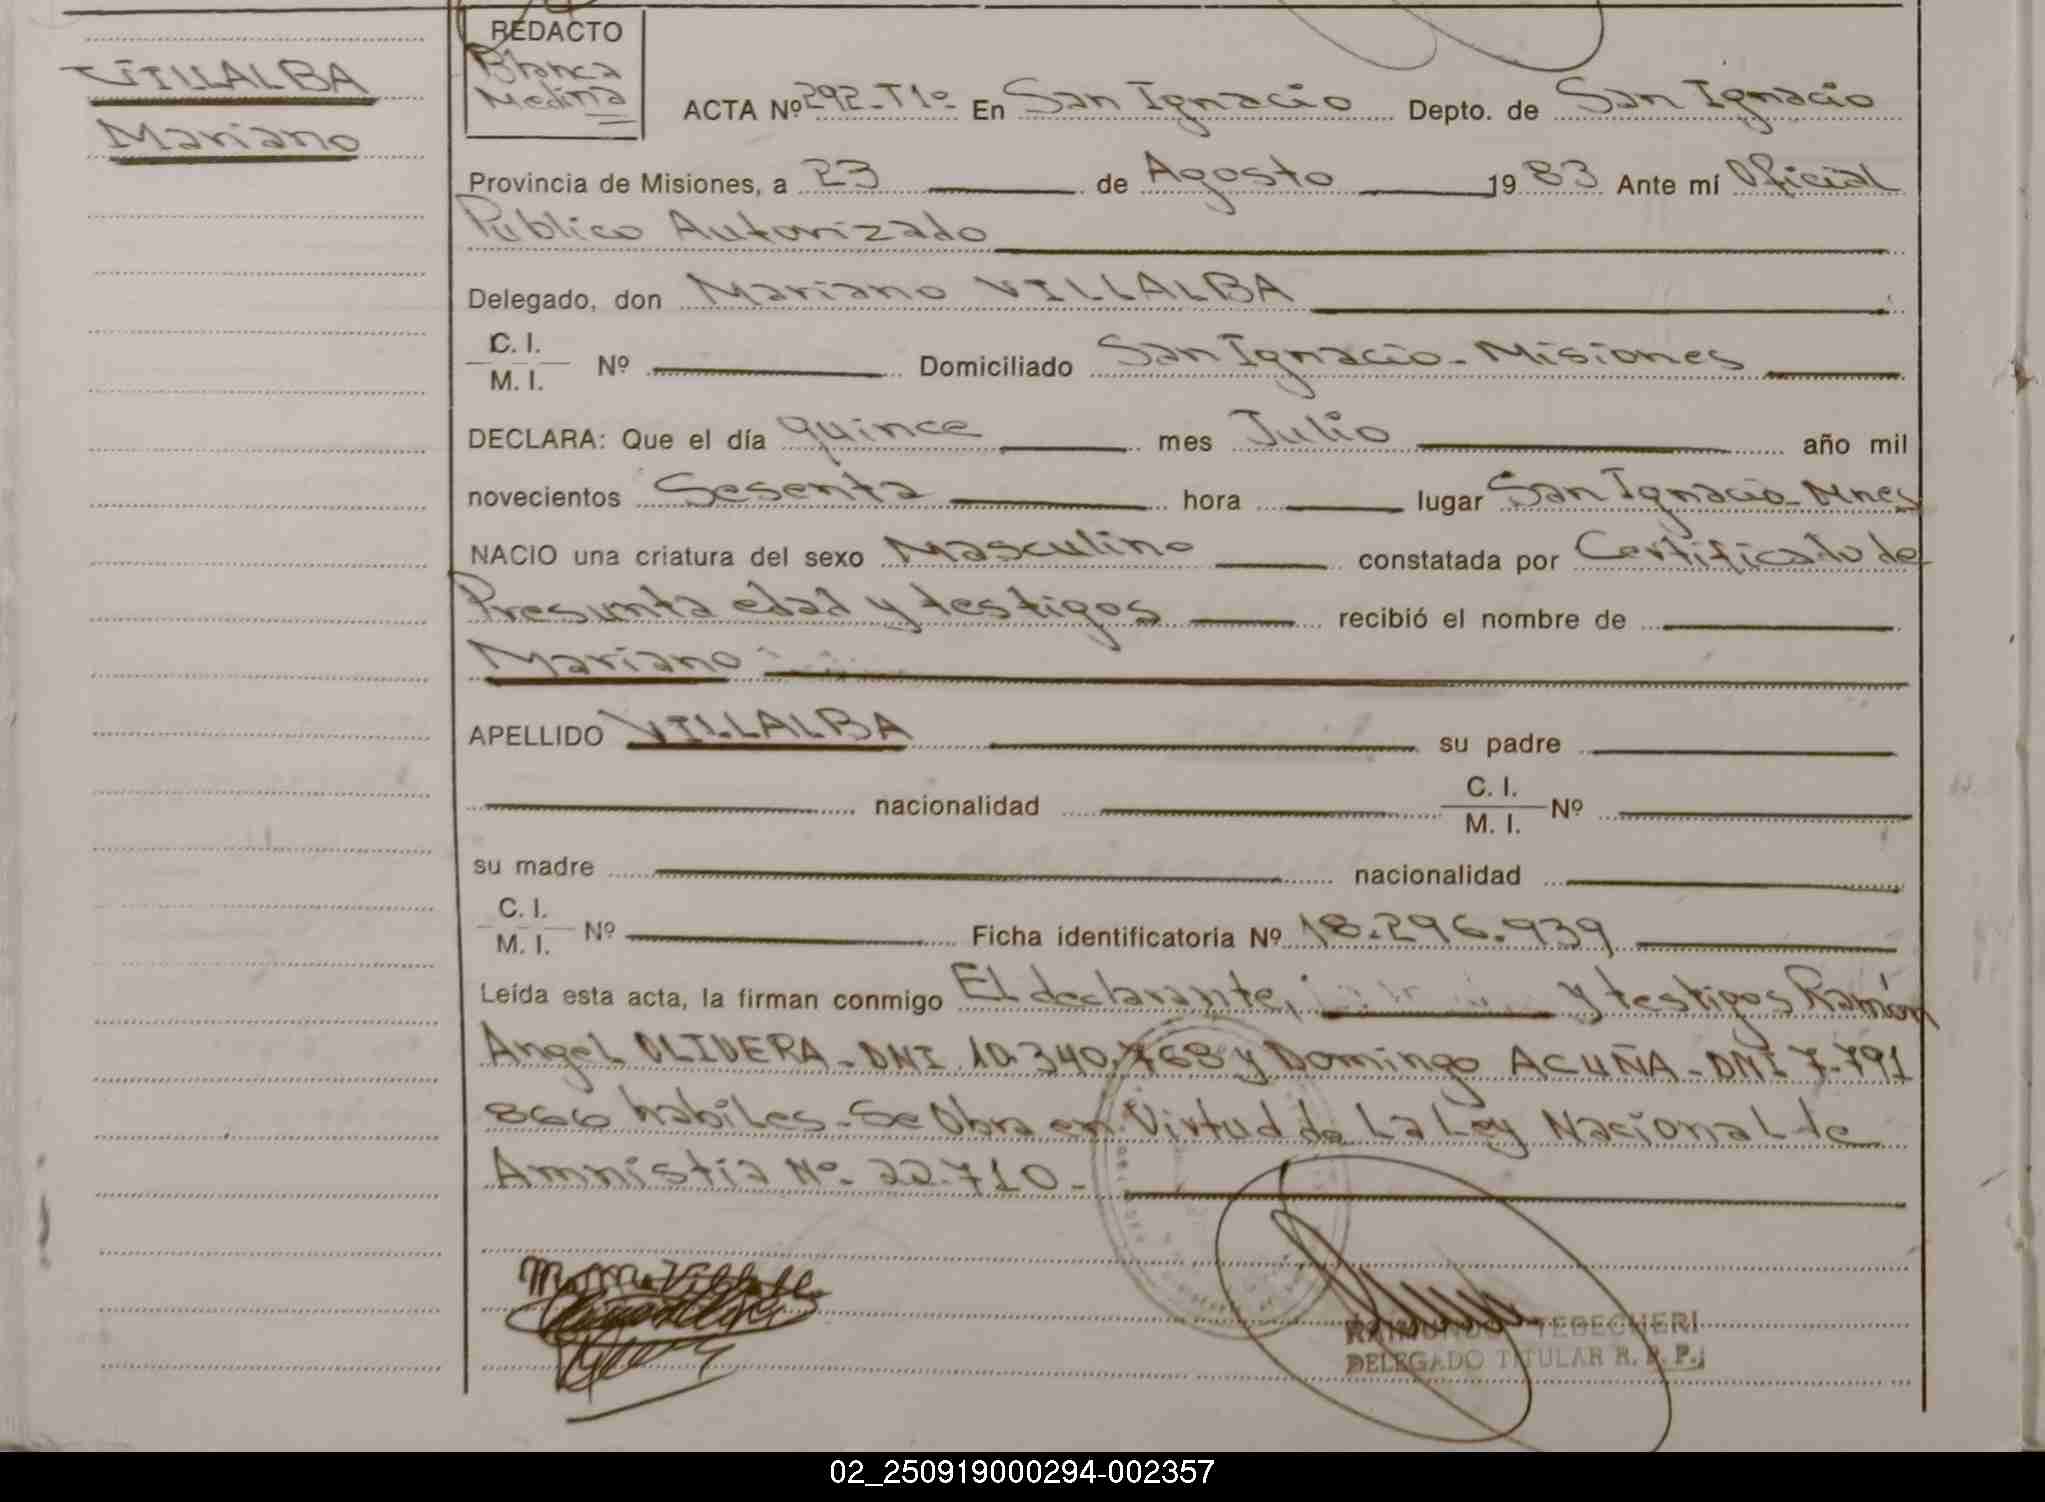 VILLALBA
Mariano
REDACTO
Blanca
Medina
ACTA Nº 292-T1º En San Ignacio Depto. de San Ignacio
Provincia de Misiones, a 23 de Agosto 1983 Ante mí Oficial
Publico Autorizado
Delegado, don Mariano VILLALBA
C. I.
M. I. Nº Domiciliado San Ignacio - Misiones
DECLARA: Que el día quince mes Julio año mil
novecientos Sesenta hora lugar San Ignacio - Mnes
NACIO una criatura del sexo Masculino constatada por Certificado de
Presunta edad y testigos recibió el nombre de
Mariano
APELLIDO VILLALBA su padre
nacionalidad C. I.
M. I. Nº
su madre nacionalidad
C. I.
M. I. Nº Ficha identificatoria Nº 18.296.939
Leída esta acta, la firman conmigo El declarante, y testigos Ramón
Angel OLIVERA - DNI 10.340.768 y Domingo ACUÑA - DNI 7.791
866 habiles - Se Obra en Virtud de La Ley Nacional de
Amnistia Nº 22.710 -
RAIMUNDO TEBECHERI
DELEGADO TITULAR R. P. P.
02_250919000294-002357